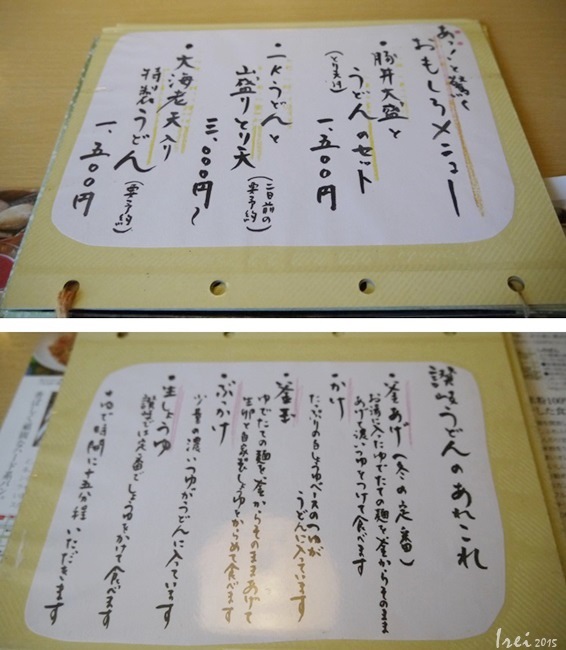 あッ!と驚く
おもしろメニュー
・豚丼大盛と
(とり天付)
うどんのセット
一、五〇〇円
・一Kうどんと
山盛りとり天
(二日前の要予約)
三、〇〇〇円〜
・大海老天入り
特製うどん
(要予約)
一、五〇〇円
讃岐うどんのあれこれ
・釜あげ(冬の定番)
お湯に入ったゆでたての麺を釜からそのまま
あげて濃いつゆをつけて食べます
・かけ
たっぷりの白しょうゆベースのつゆが
うどんに入っています
・釜玉
ゆでたての麺を釜からそのままあげて
生卵と自家製しょうゆとからめて食べます
・ぶかけ
少量の濃いつゆがうどんに入っています
・生しょうゆ
讃岐では定番でしょうゆをかけて食べます
・ゆで時間に十五分程いただきます
Irei 2015